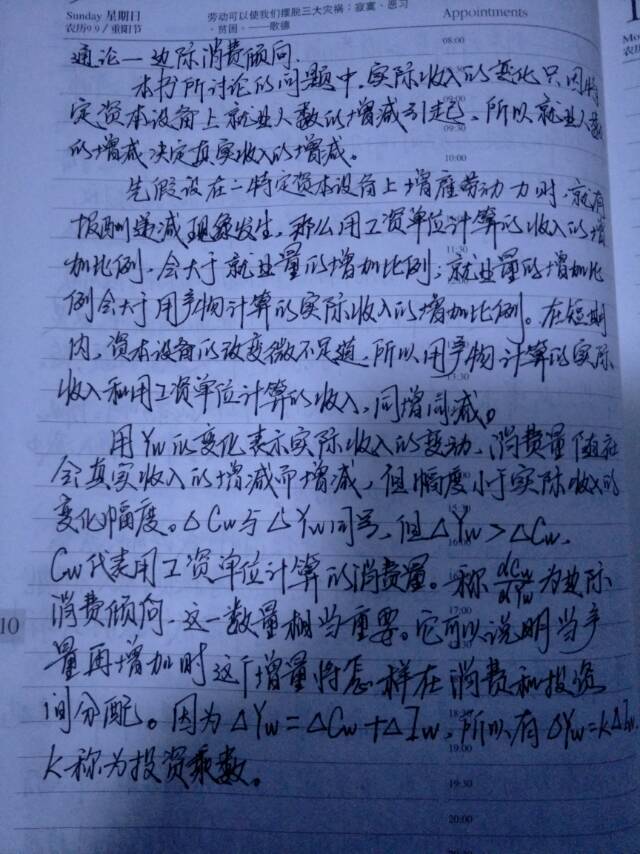 Sunday 星期日
农历9.9/重阳节
劳动可以使我们摆脱三大灾祸：寂寞、恶习
、贫困。——歌德
Appointments
08:00
通论—边际消费倾向.
本书所讨论的问题中，实际收入的变化只因特
定资本设备上就业人数的增减引起，所以就业人数
09:30
的增减决定真实收入的增减。
10:00
先假设在一特定资本设备上增雇劳动力时，就有
报酬递减现象发生，那么用工资单位计算的收入的增
11:30
加比例，会大于就业量的增加比例；就业量的增加比
例会大于用产物计算的实际收入的增加比例。在短期
内，资本设备的改变微不足道，所以用产物计算的实际
13:30
收入和用工资单位计算的收入，同增同减。
用Yw的变化表示实际收入的变动，消费量随社
会真实收入的增减而增减，但幅度小于实际收入的
变化幅度。△Cw与△Yw同号，但△Yw>△Cw.
16:00
Cw代表用工资单位计算的消费量。称dCw/dYw为边际
消费倾向，这一数量相当重要。它可以说明当产
17:00
10
量再增加时这个增量将怎样在消费和投资
间分配。因为△Yw=△Cw+△Iw，所以有△Yw=k△Iw.
18:30
19:00
k称为投资乘数。
19:30
20:00